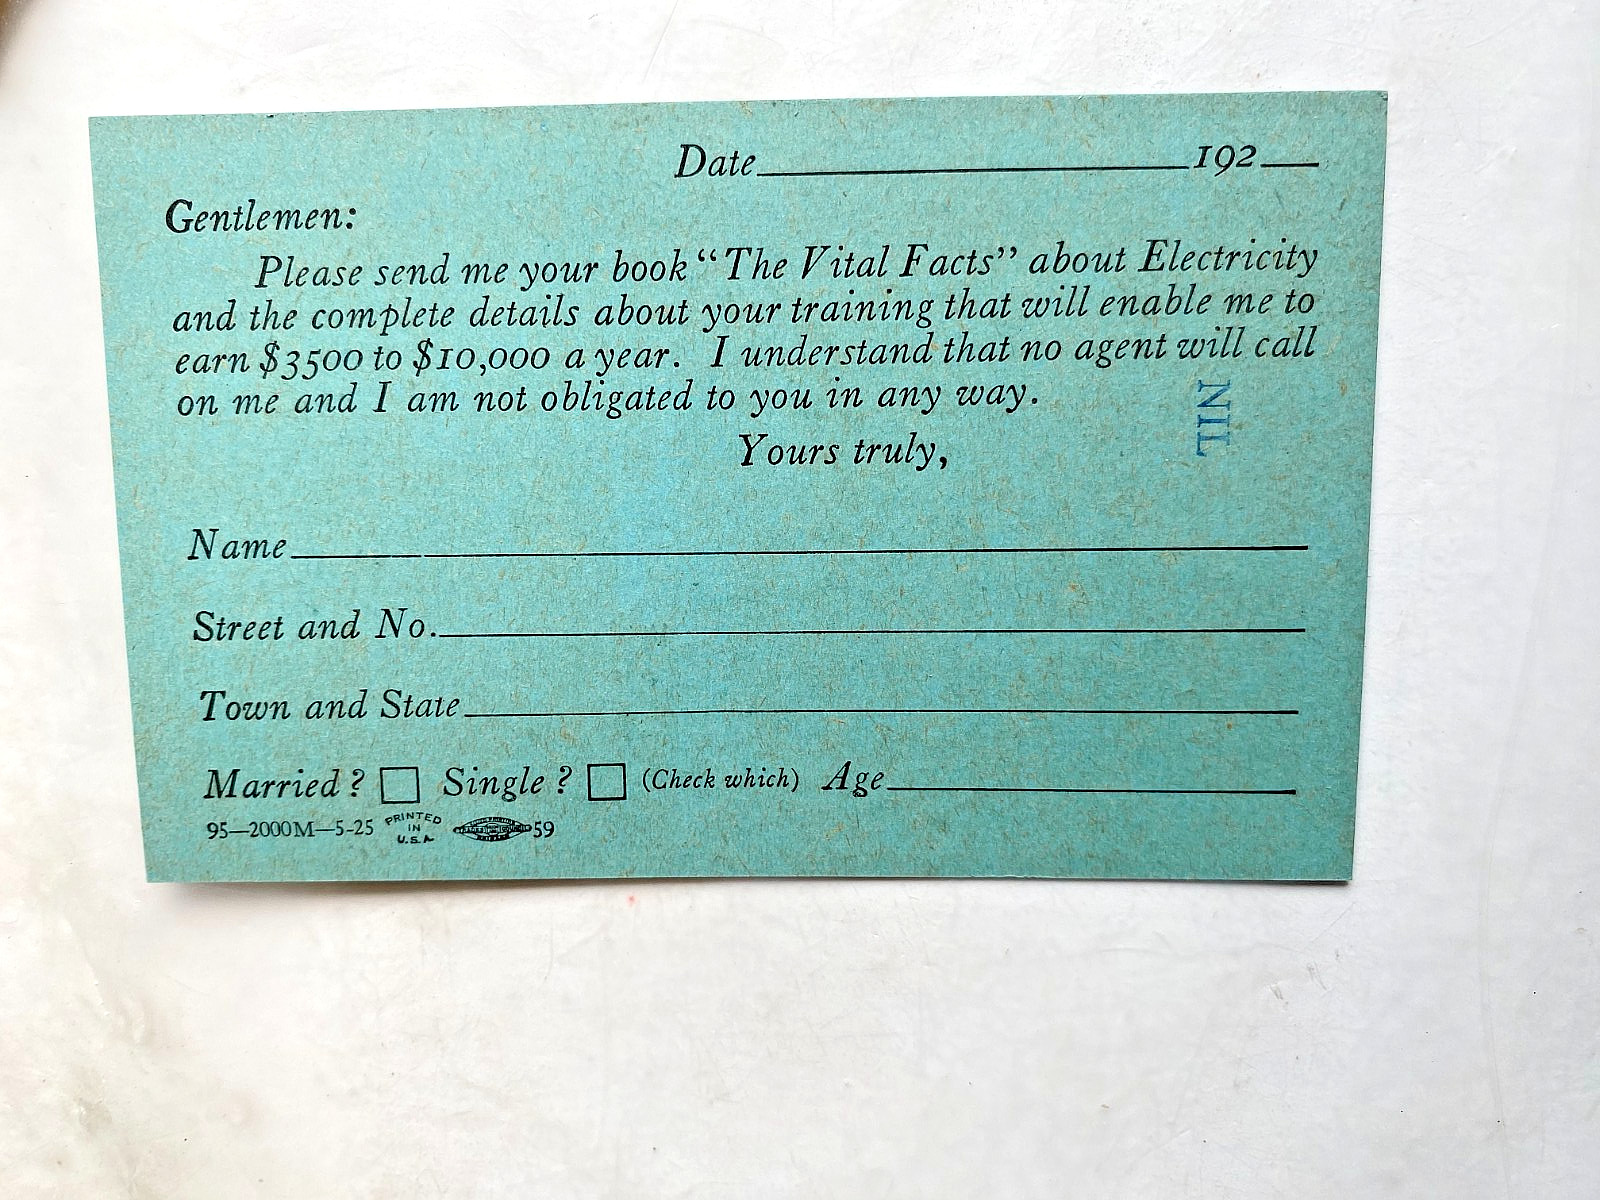 Date 192
Gentlemen:
Please send me your book “The Vital Facts” about Electricity
and the complete details about your training that will enable me to
earn $3500 to $10,000 a year. I understand that no agent will call
on me and I am not obligated to you in any way.
NIL
Yours truly,
Name
Street and No.
Town and State
Married? Single? (Check which) Age
95—2000M—5-25 PRINTED IN U.S.A. 59